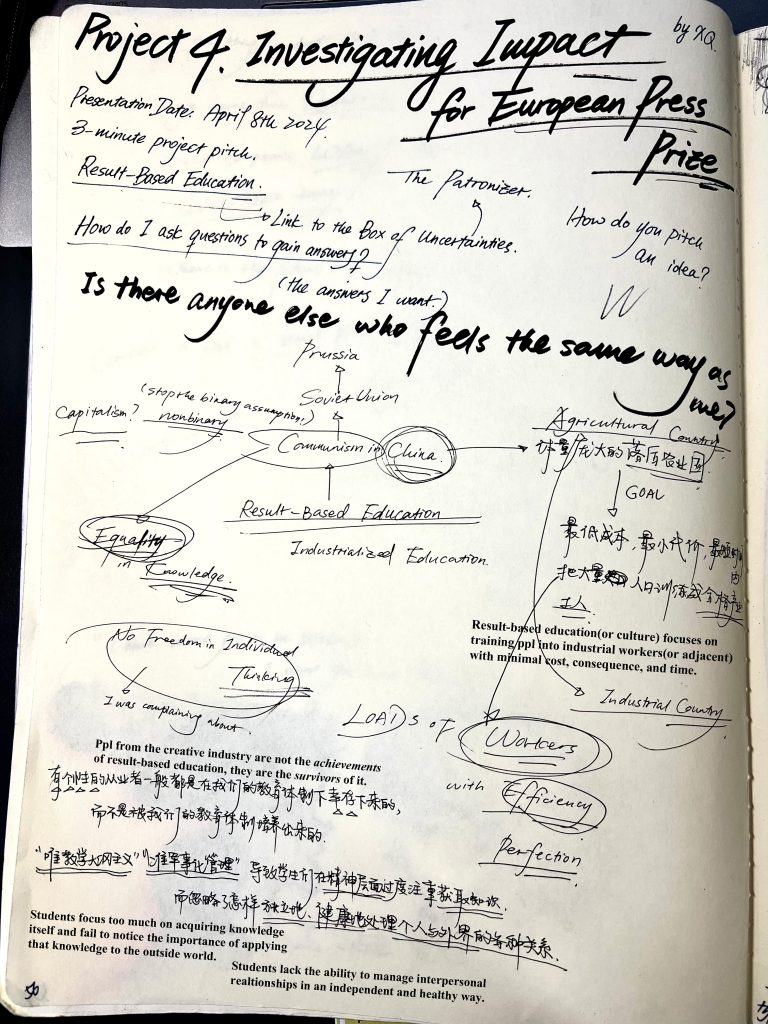 by XQ.
Project 4. Investigating Impact
for European Press
Prize
Presentation Date: April 8th 2024.
3-minute project pitch.
Result-Based Education.
The Patronizer.
Link to the Box of Uncertainties.
How do I ask questions to gain answers?
(the answers I want)
How do you pitch
an idea?
Is there anyone else who feels the same way as
me?
Prussia
Soviet Union
(stop the binary assumption!)
Capitalism?
nonbinary
Communism in China.
Result-Based Education
Industrialized Education.
Equality
in Knowledge.
Agricultural Country
体量庞大的落后农业国
GOAL
最低成本,最小代价,最短时间
内
把大量人口训练成合格产业
工人
Result-based education(or culture) focuses on
training ppl into industrial workers(or adjacent)
with minimal cost, consequence, and time.
Industrial Country
No Freedom in Individual
Thinking
I was complaining about.
LOADs of
Workers
with Efficiency
Perfection
Ppl from the creative industry are not the achievements
of result-based education, they are the survivors of it.
有个性的从业者一般都是在我们的教育体制下幸存下来的,
而不是被我们的教育体制培养出来的.
"唯教学大纲主义" "准军事化管理" 导致学生们在精神层面过度注重获取知识.
而忽略了怎样独立地、健康地处理个人与外界的各种关系.
Students focus too much on acquiring knowledge
itself and fail to notice the importance of applying
that knowledge to the outside world.
Students lack the ability to manage interpersonal
realtionships in an independent and healthy way.
50